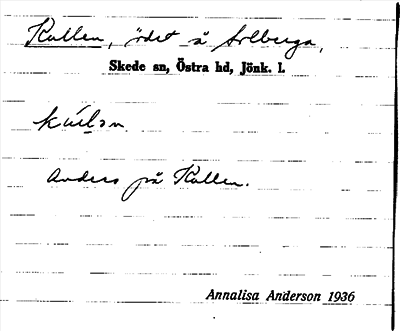 Kullen, ödet å Solberga,
Skede sn, Östra hd, Jönk. l.
kúlən
Anders på Kullen.
Annalisa Anderson 1936